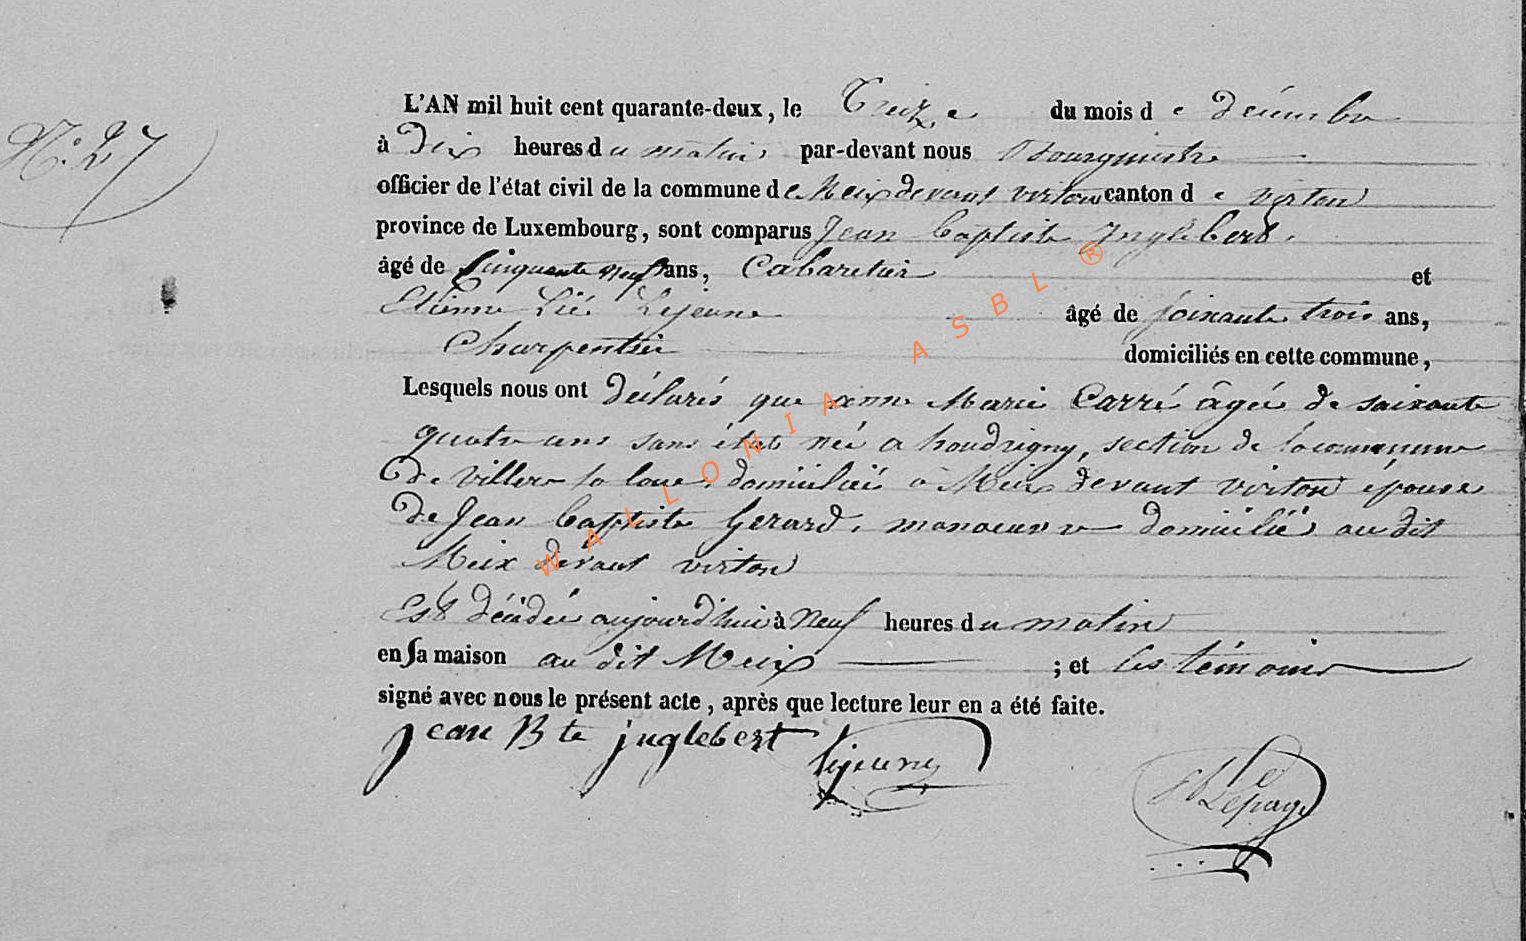 N.° 27
L'AN mil huit cent quarante-deux, le Treize du mois de décembre
à Dix heures du matin, par-devant nous Bourgmestre
officier de l'état civil de la commune de Meix devant virton canton de virton
province de Luxembourg, sont comparus Jean Baptiste Inglebert,
âgé de Cinquante neuf ans, Cabaretier et
Etienne Lié Lejeune âgé de soixante trois ans,
Charpentier domiciliés en cette commune,
Lesquels nous ont déclarés que anne Marie Carré âgée de soixante
quatre ans sans état née a houdrigny, section de la commune
De villers la loue, domiciliée a Meix devant virton épouse
De Jean baptiste Gerard, manoeuvre domicilié au dit
Meix devant virton
Est décédée aujourd'hui à Neuf heures du matin
en sa maison au dit Meix ; et les témoins
signé avec nous le présent acte, après que lecture leur en a été faite.
jean Bte jnglebert Lejeune
Lepage
WALLONIA ASBL ®